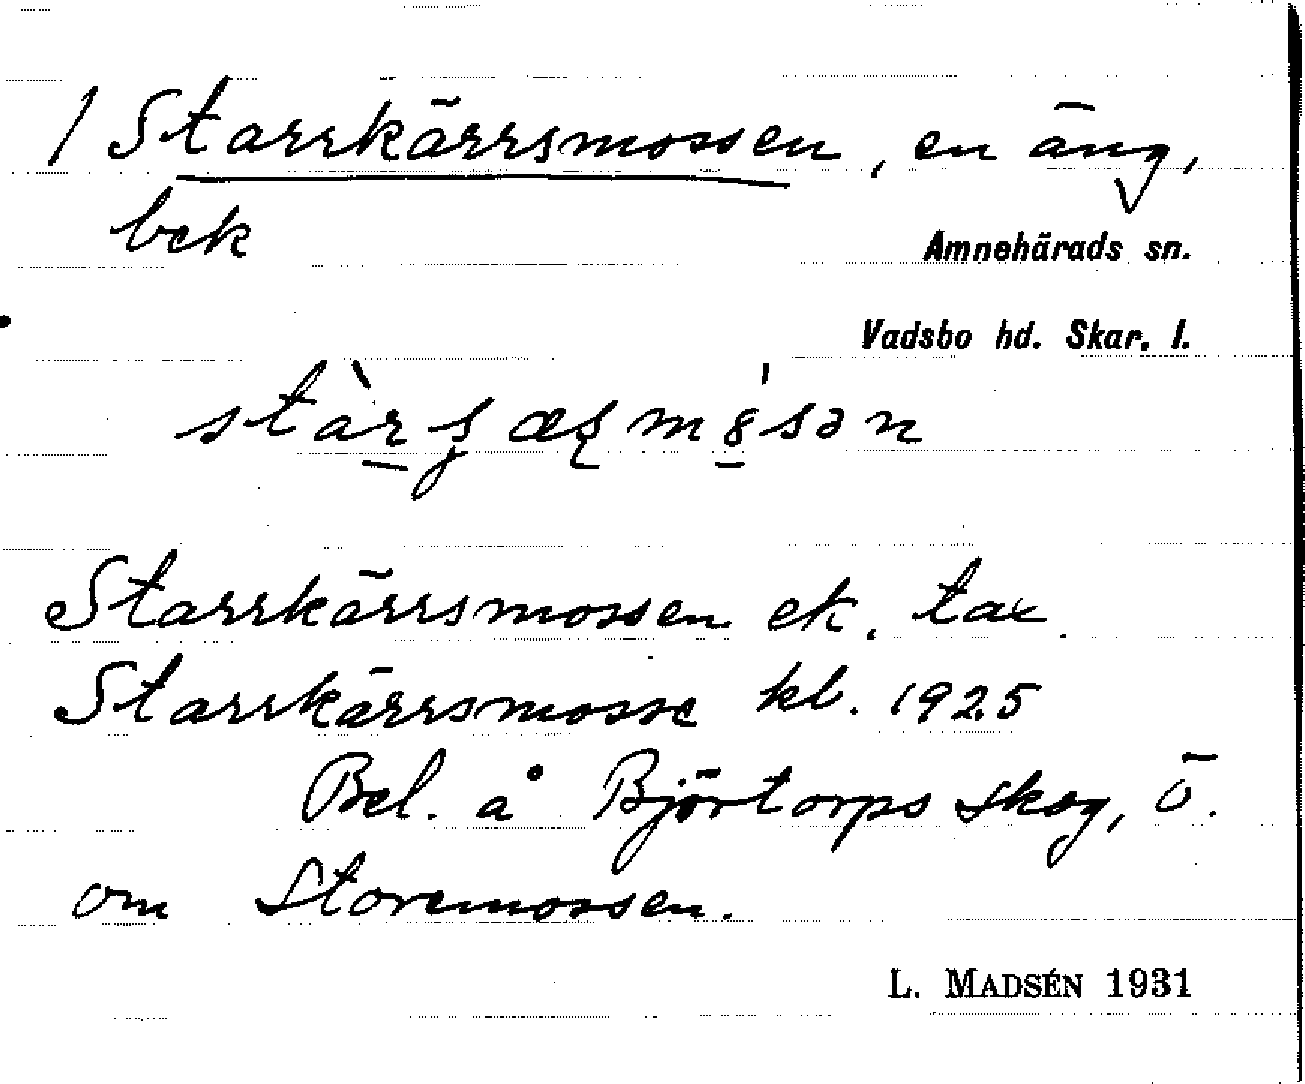 / Starrkärrsmossen, en äng,
bek
Amnehärads sn.
Vadsbo hd. Skar. l.
Starrkärrsmossen ek. tax
Starrkärrsmosse kl. 1925
Bel. å Björtorps skog, ö.
om Storemossen.
L. MADSÉN 1931